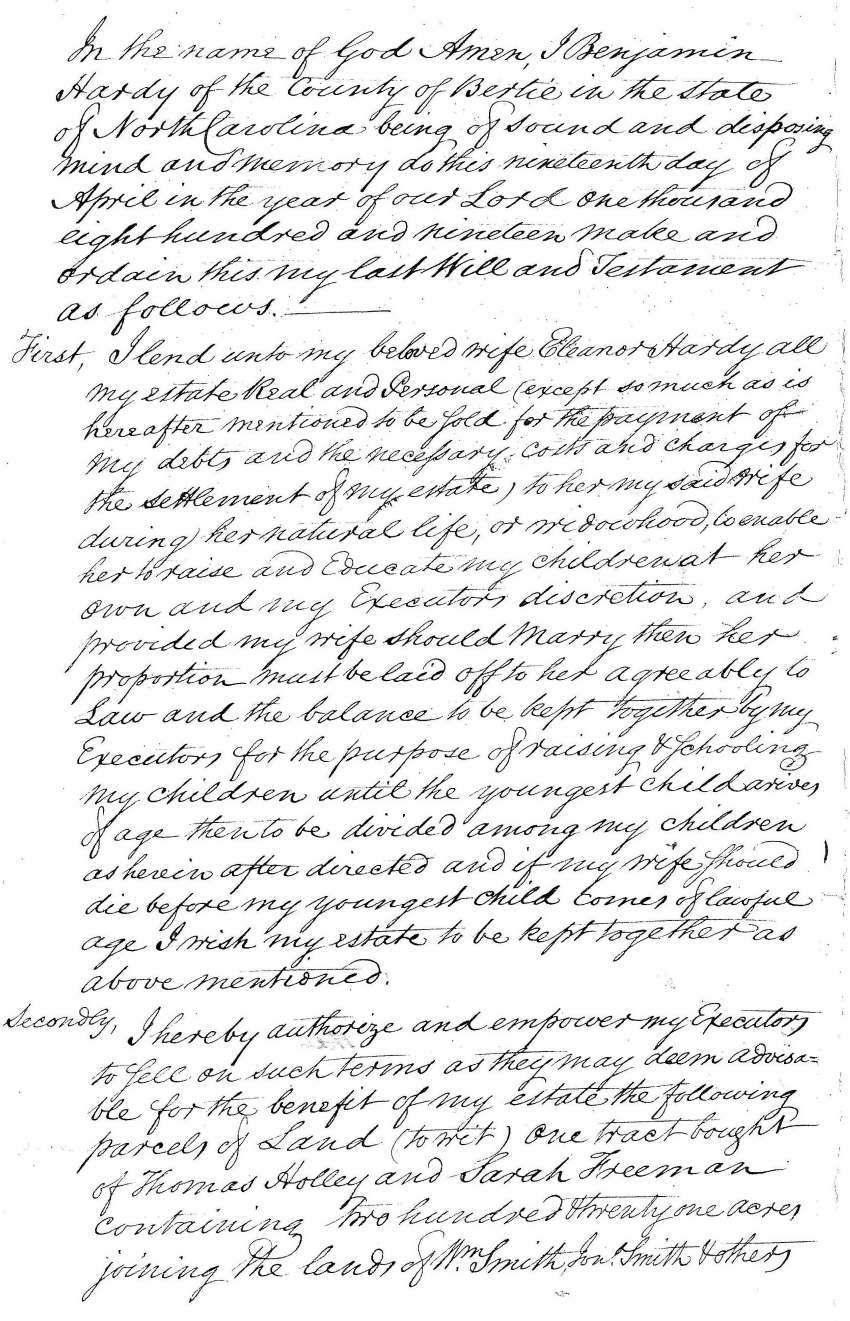 In the name of God Amen, I Benjamin
Hardy of the County of Bertie in the state
of North Carolina being of sound and disposing
mind and memory do this nineteenth day of
April in the year of our Lord one thousand
eight hundred and nineteen make and
ordain this my last Will and Testament
as follows.
First, I lend unto my beloved wife Eleanor Hardy all
my estate Real and Personal (except so much as is
hereafter mentioned to be sold for the payment of
my debts and the necessary costs and charges for
the settlement of my estate) to her my said wife
during her natural life, or widowhood, to enable
her to raise and Educate my children at her
own and my Executors discretion, and
provided my wife should Marry then her
proportion must be laid off to her agreeably to
Law and the balance to be kept together by my
Executors for the purpose of raising & schooling
my children until the youngest child arives
of age then to be divided among my children
as herein after directed and if my wife should
die before my youngest child comes of lawful
age I wish my estate to be kept together as
above mentioned.
Secondly, I hereby authorize and empower my Executors
to sell on such terms as they may deem advisa=
ble for the benefit of my estate the following
parcels of Land (to wit) One tract bought
of Thomas Holley and Sarah Freeman
containing two hundred & twenty one acres
joining the lands of Wm. Smith, Jons. Smith & others